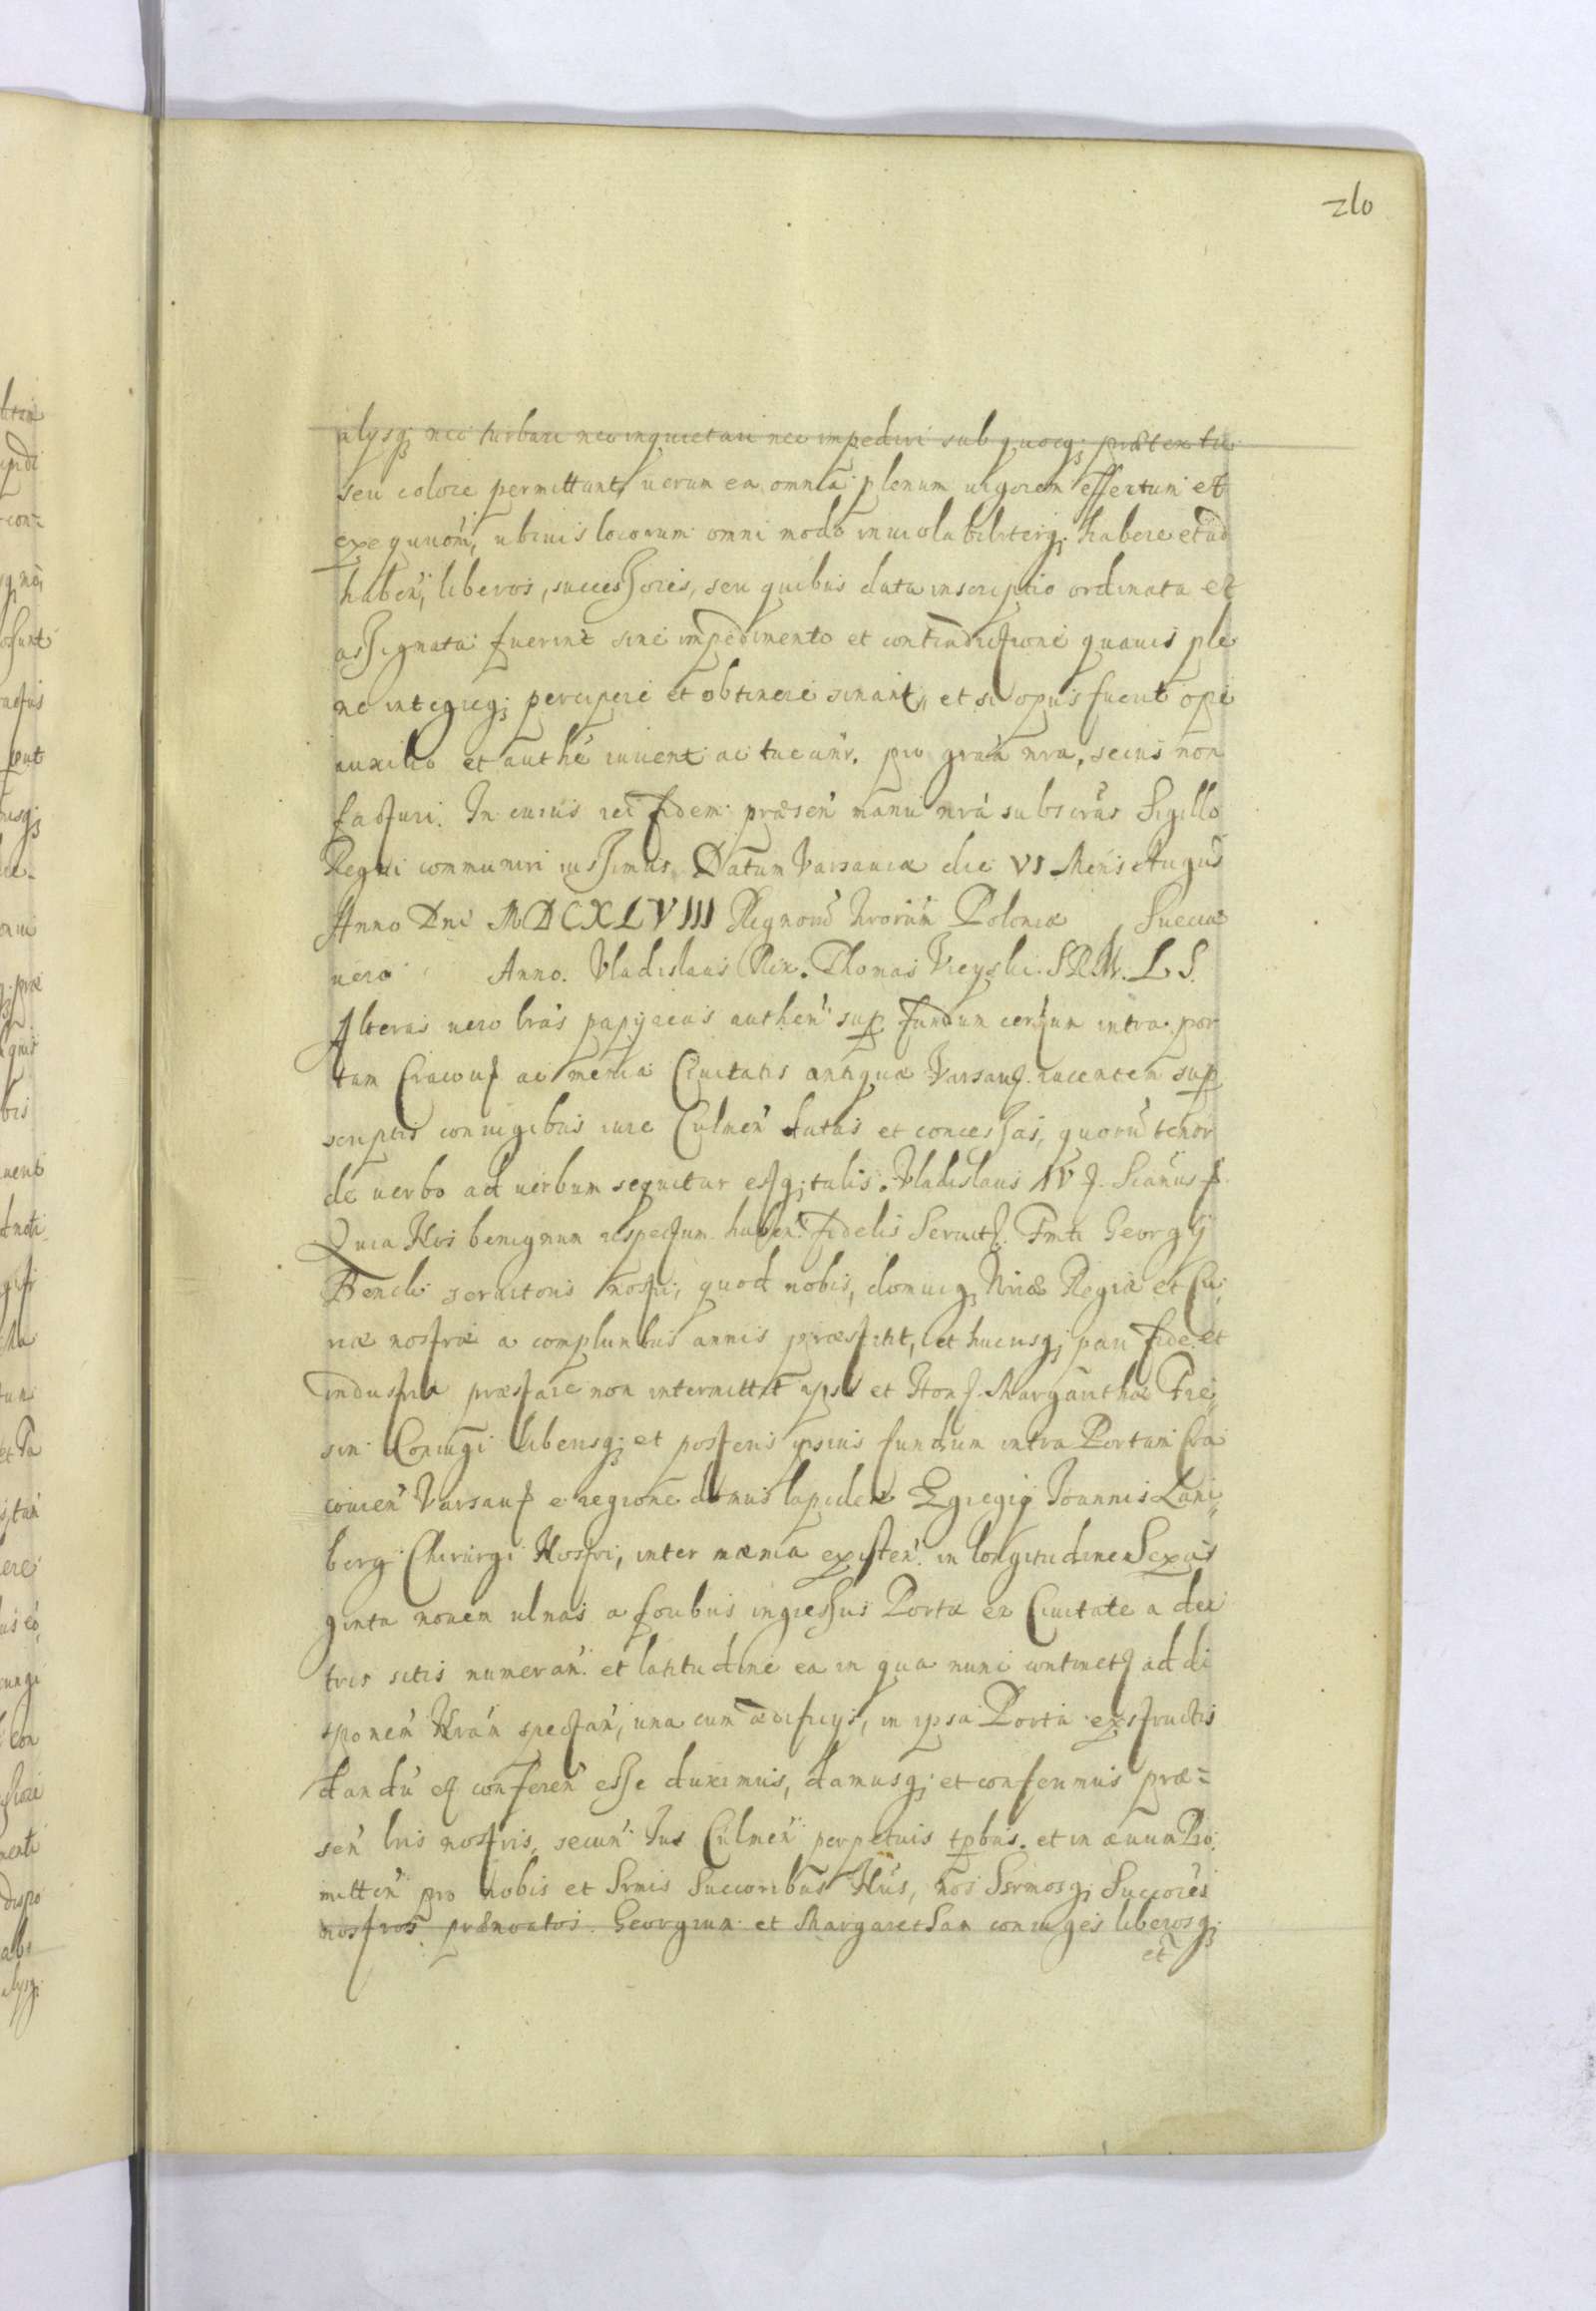 210
alysq; nec turbare nec inquietari nec impediri sub quocq; prætextu
seu colore permittant, uerum ea omnia plenum uigorem effectum et
exequuom, ubiuis locorum omni modo inuiolabiliterq; habere et ad
haben, liberos, successores, seu quibus data inscriptio ordinata et
assignata fuerint sine impedimento et contradictione quauis ple
ne integreq; percipere et obtinere sinant, et si opus fuerit ope
auxilio et authe iuuent ac tueanr. pro gra nra, secus non
facturi. In cuius rei fidem præsen manu nra subscras Sigillo
Regni communiri iussimus. Datum Varsauiæ die VI Mens Augus
Anno Dni MDCXLVIII Regnoru Nrorum Poloniæ Sueciæ
uero Anno. Vladislaus Rex. Thomas Vieyski. S.R.M. L.S.
Alteras uero lras papyreas authen sup fundum certum intra por
tam Cracou ac menia Ciuitatis antiquæ Varsau. iacentem sup
scriptis coniugibus iure Culmen datas et concessas, quoru tenor
de uerbo ad uerbum sequitur estq; talis. Vladislaus IV
Quia Nos benignum respectum haben fidelis Seruit. Fmti Georgij
seruitoris nostri, quod nobis, domuiq; Nræ Regiæ et Cu,
riæ nostræ a compluribus annis præstitit, et hucusq; pari fide et
industria præstare non intermittit ipsi et Hon. Margarithæ Fre,
sin Coniugi liberisq; et posteris ipsius fundum intra Portam Cra
couien Varsau e regione domus lapideæ Egregij Joannis Lam,
berg Chirurgi Nostri, inter mænia existen. in longitudinem Sexa
ginta nouem ulnas a foribus ingressus Portæ ex Ciuitate a dex
tris sitis numeran. et latitudine ea in qua nunc continet ad di
sponem Nram spectan, una cum ædificijs, in ipsa Porta exstructis
dandu et conferen esse duximus, damusq; et conferimus præ=
sen lris nostris, secun Jus Culmen perpetuis tpbus. et in æuum Pro,
mitten pro nobis et Srmis Succoribus Nris, nos Sermosq; Succores
nostros prænoatos Georgium et Margaretham coniuges liberosq;
et